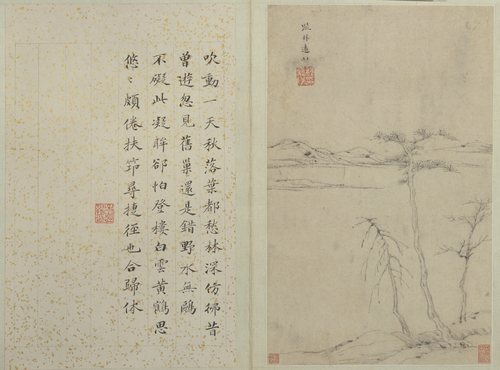 疏林遠岫
吹動一天秋落葉都愁林深仿彿昔
曾遊忽見舊巢還是錯野水無鷗
不礙此凝眸卻怕登樓白雲黃鶴思
悠〻頗倦扶筇尋捷徑也合歸休